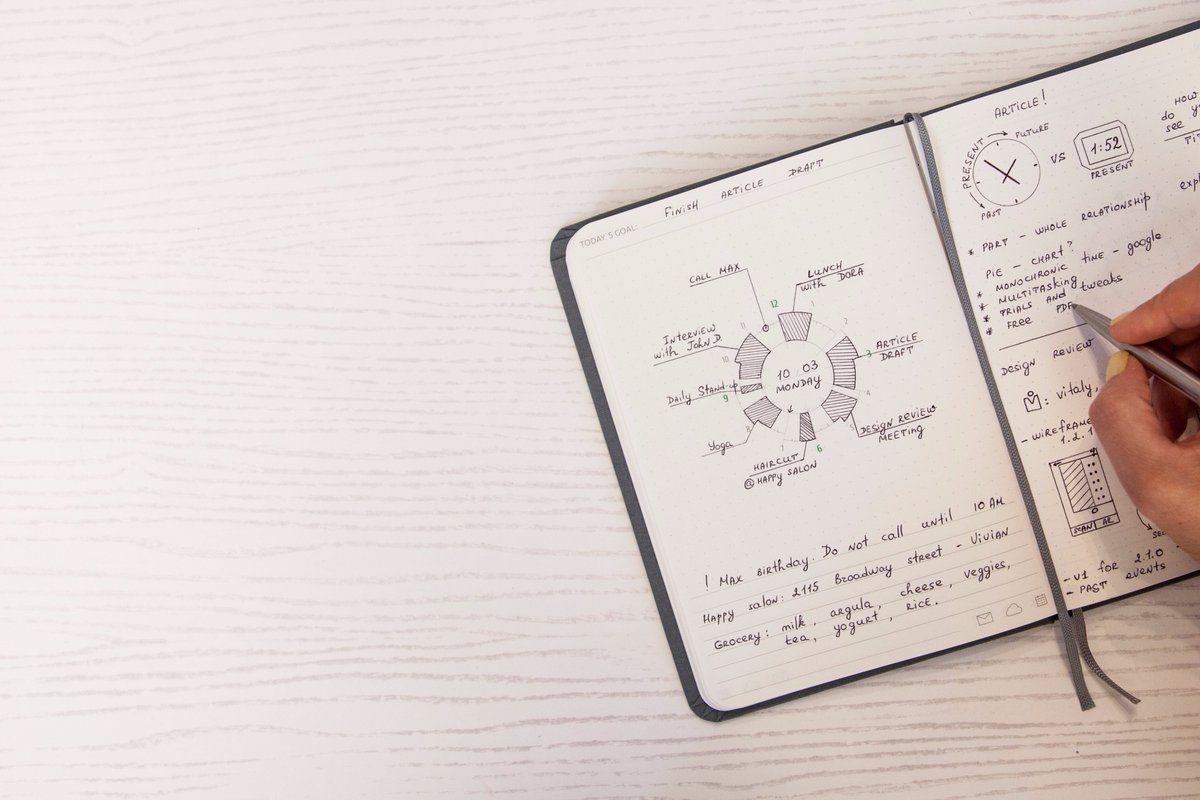 TODAY'S GOAL: FINISH ARTICLE DRAFT
CALL MAX
LUNCH
with DORA
12
1
11
2
INTERVIEW
with JOHN D.
10
3
ARTICLE
DRAFT
10 03
MONDAY
Daily Stand-up
9
4
8
5
DESIGN REVIEW
MEETING
Yoga
7
6
HAIRCUT
@ HAPPY SALON
! MAX BIRTHDAY. DO NOT CALL UNTIL 10 AM
HAPPY SALON: 2115 BROADWAY STREET - VIVIAN
GROCERY: milk, argula, cheese, veggies,
tea, yogurt, RICE.
ARTICLE!
PRESENT
FUTURE
PAST
VS
1:52
PRESENT
HOW
do
see
* PART - WHOLE RELATIONSHIP
PIE - CHART?
* MONOCHRONIC TIME - google
* MULTITASKING
* TRIALS AND tweaks
* FREE PDF
DESIGN REVIEW
: vitaly,
- WIREFRAME
1.2.1
SCAN
- V1 FOR 2.1.0
- PAST EVENTS